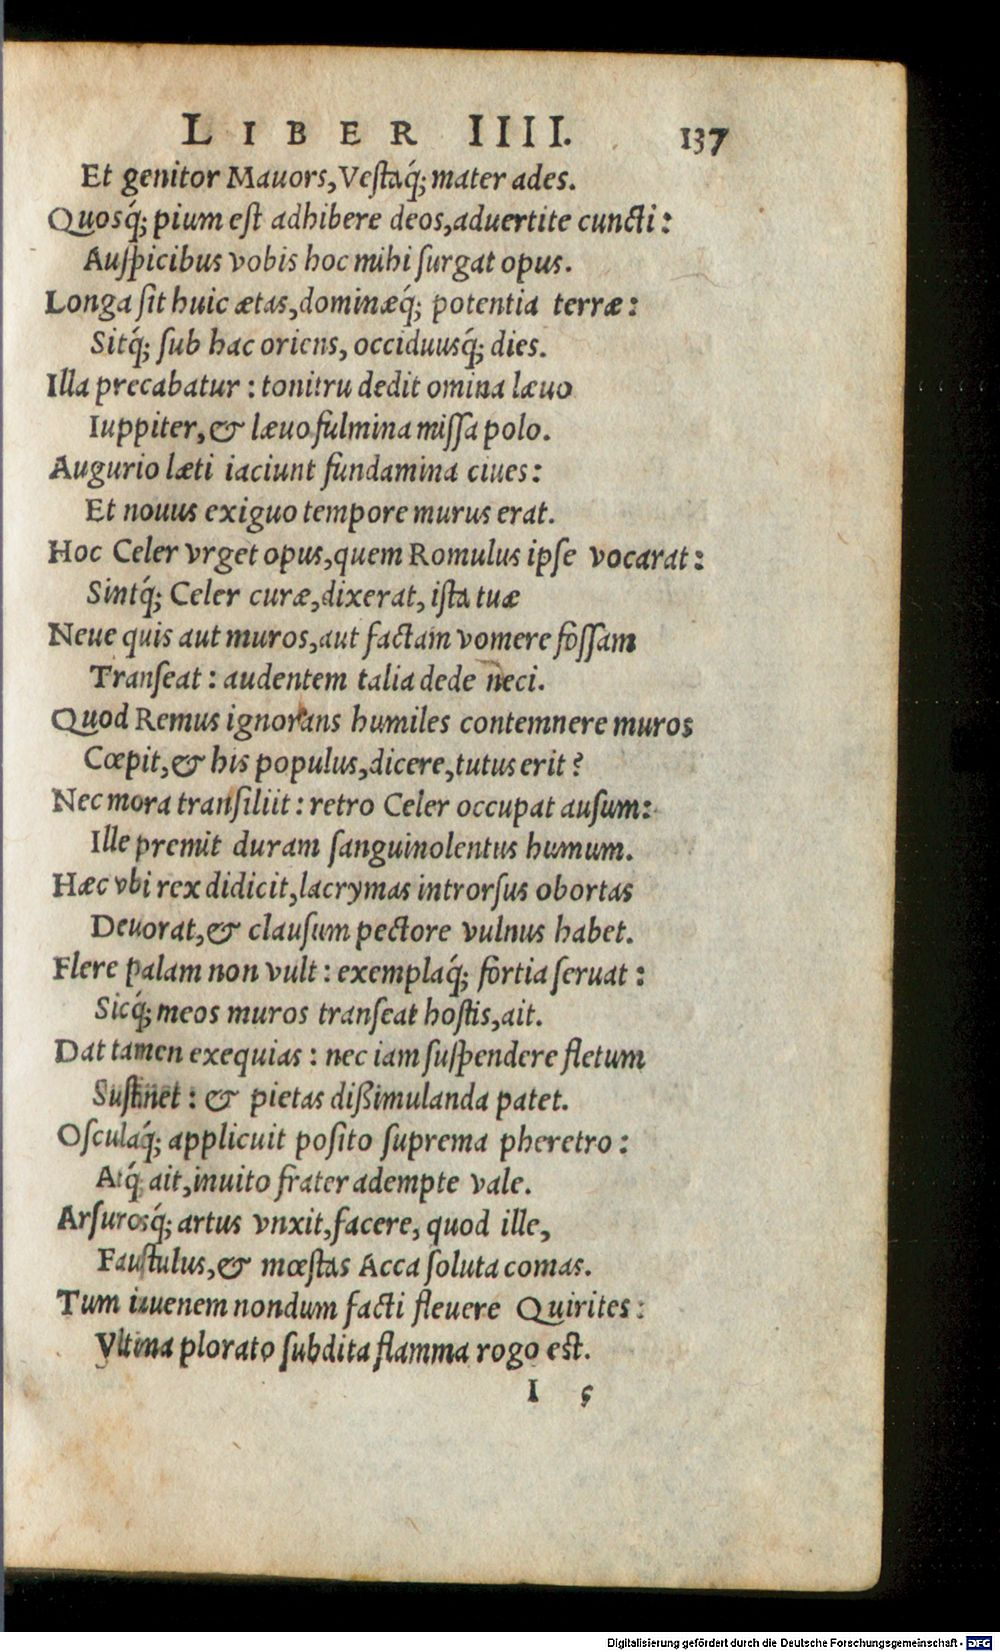 LIBER IIII. 137
Et genitor Mauors, Vestaq́; mater ades.
Quosq́; pium est adhibere deos, aduertite cuncti:
Auſpicibus vobis hoc mihi ſurgat opus.
Longa ſit huic ætas, dominæq́; potentia terræ:
Sitq́; ſub hac oriens, occiduusq́; dies.
Illa precabatur: tonitru dedit omina læuo
Iuppiter, & læuo fulmina miſſa polo.
Augurio læti iaciunt fundamina ciues:
Et nouus exiguo tempore murus erat.
Hoc Celer vrget opus, quem Romulus ipſe vocarat:
Sintq́; Celer curæ, dixerat, iſta tuæ
Neue quis aut muros, aut factam vomere foſſam
Tranſeat: audentem talia dede neci.
Quod Remus ignorans humiles contemnere muros
Cœpit, & his populus, dicere, tutus erit?
Nec mora tranſiliit: retro Celer occupat auſum:
Ille premit duram ſanguinolentus humum.
Hæc vbi rex didicit, lacrymas introrſus obortas
Deuorat, & clauſum pectore vulnus habet.
Flere palam non vult: exemplaq́; fortia ſeruat:
Sicq́; meos muros tranſeat hoſtis, ait.
Dat tamen exequias: nec iam ſuſpendere fletum
Suſtinet: & pietas dißimulanda patet.
Oſculaq́; applicuit poſito ſuprema pheretro:
Atq́; ait, inuito frater adempte vale.
Arſurosq́; artus vnxit, facere, quod ille,
Fauſtulus, & mœſtas Acca ſoluta comas.
Tum iuuenem nondum facti fleuere Quirites:
Vltima plorato ſubdita flamma rogo est.
I 5
Digitalisierung gefördert durch die Deutsche Forschungsgemeinschaft - DFG